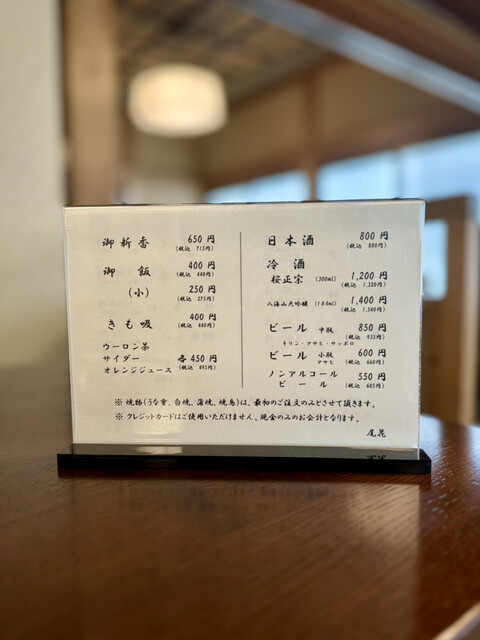 御新香 650円
(税込 715円)
御飯 400円
(税込 440円)
(小) 250円
(税込 275円)
きも吸 400円
(税込 440円)
ウーロン茶
サイダー 各450円
オレンジジュース (税込 495円)
日本酒 800円
(税込 880円)
冷酒
桜正宗 (300ml) 1,200円
(税込 1,320円)
八海山大吟醸 (180ml) 1,400円
(税込 1,540円)
ビール 中瓶 850円
(税込 935円)
キリン・アサヒ・サッポロ
ビール 小瓶 600円
アサヒ (税込 660円)
ノンアルコール 550円
ビール (税込 605円)
※ 焼物(うな重、白焼、蒲焼、焼鳥)は、最初のご注文のみとさせて頂きます。
※ クレジットカードはご使用いただけません。現金のみのお会計となります。
尾花